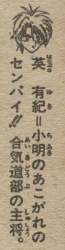 英　有紀＝小明のあこがれの
センパイ!!
合気道部の主将。